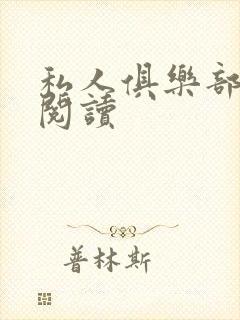 私人俱樂部
閱讀
普林斯